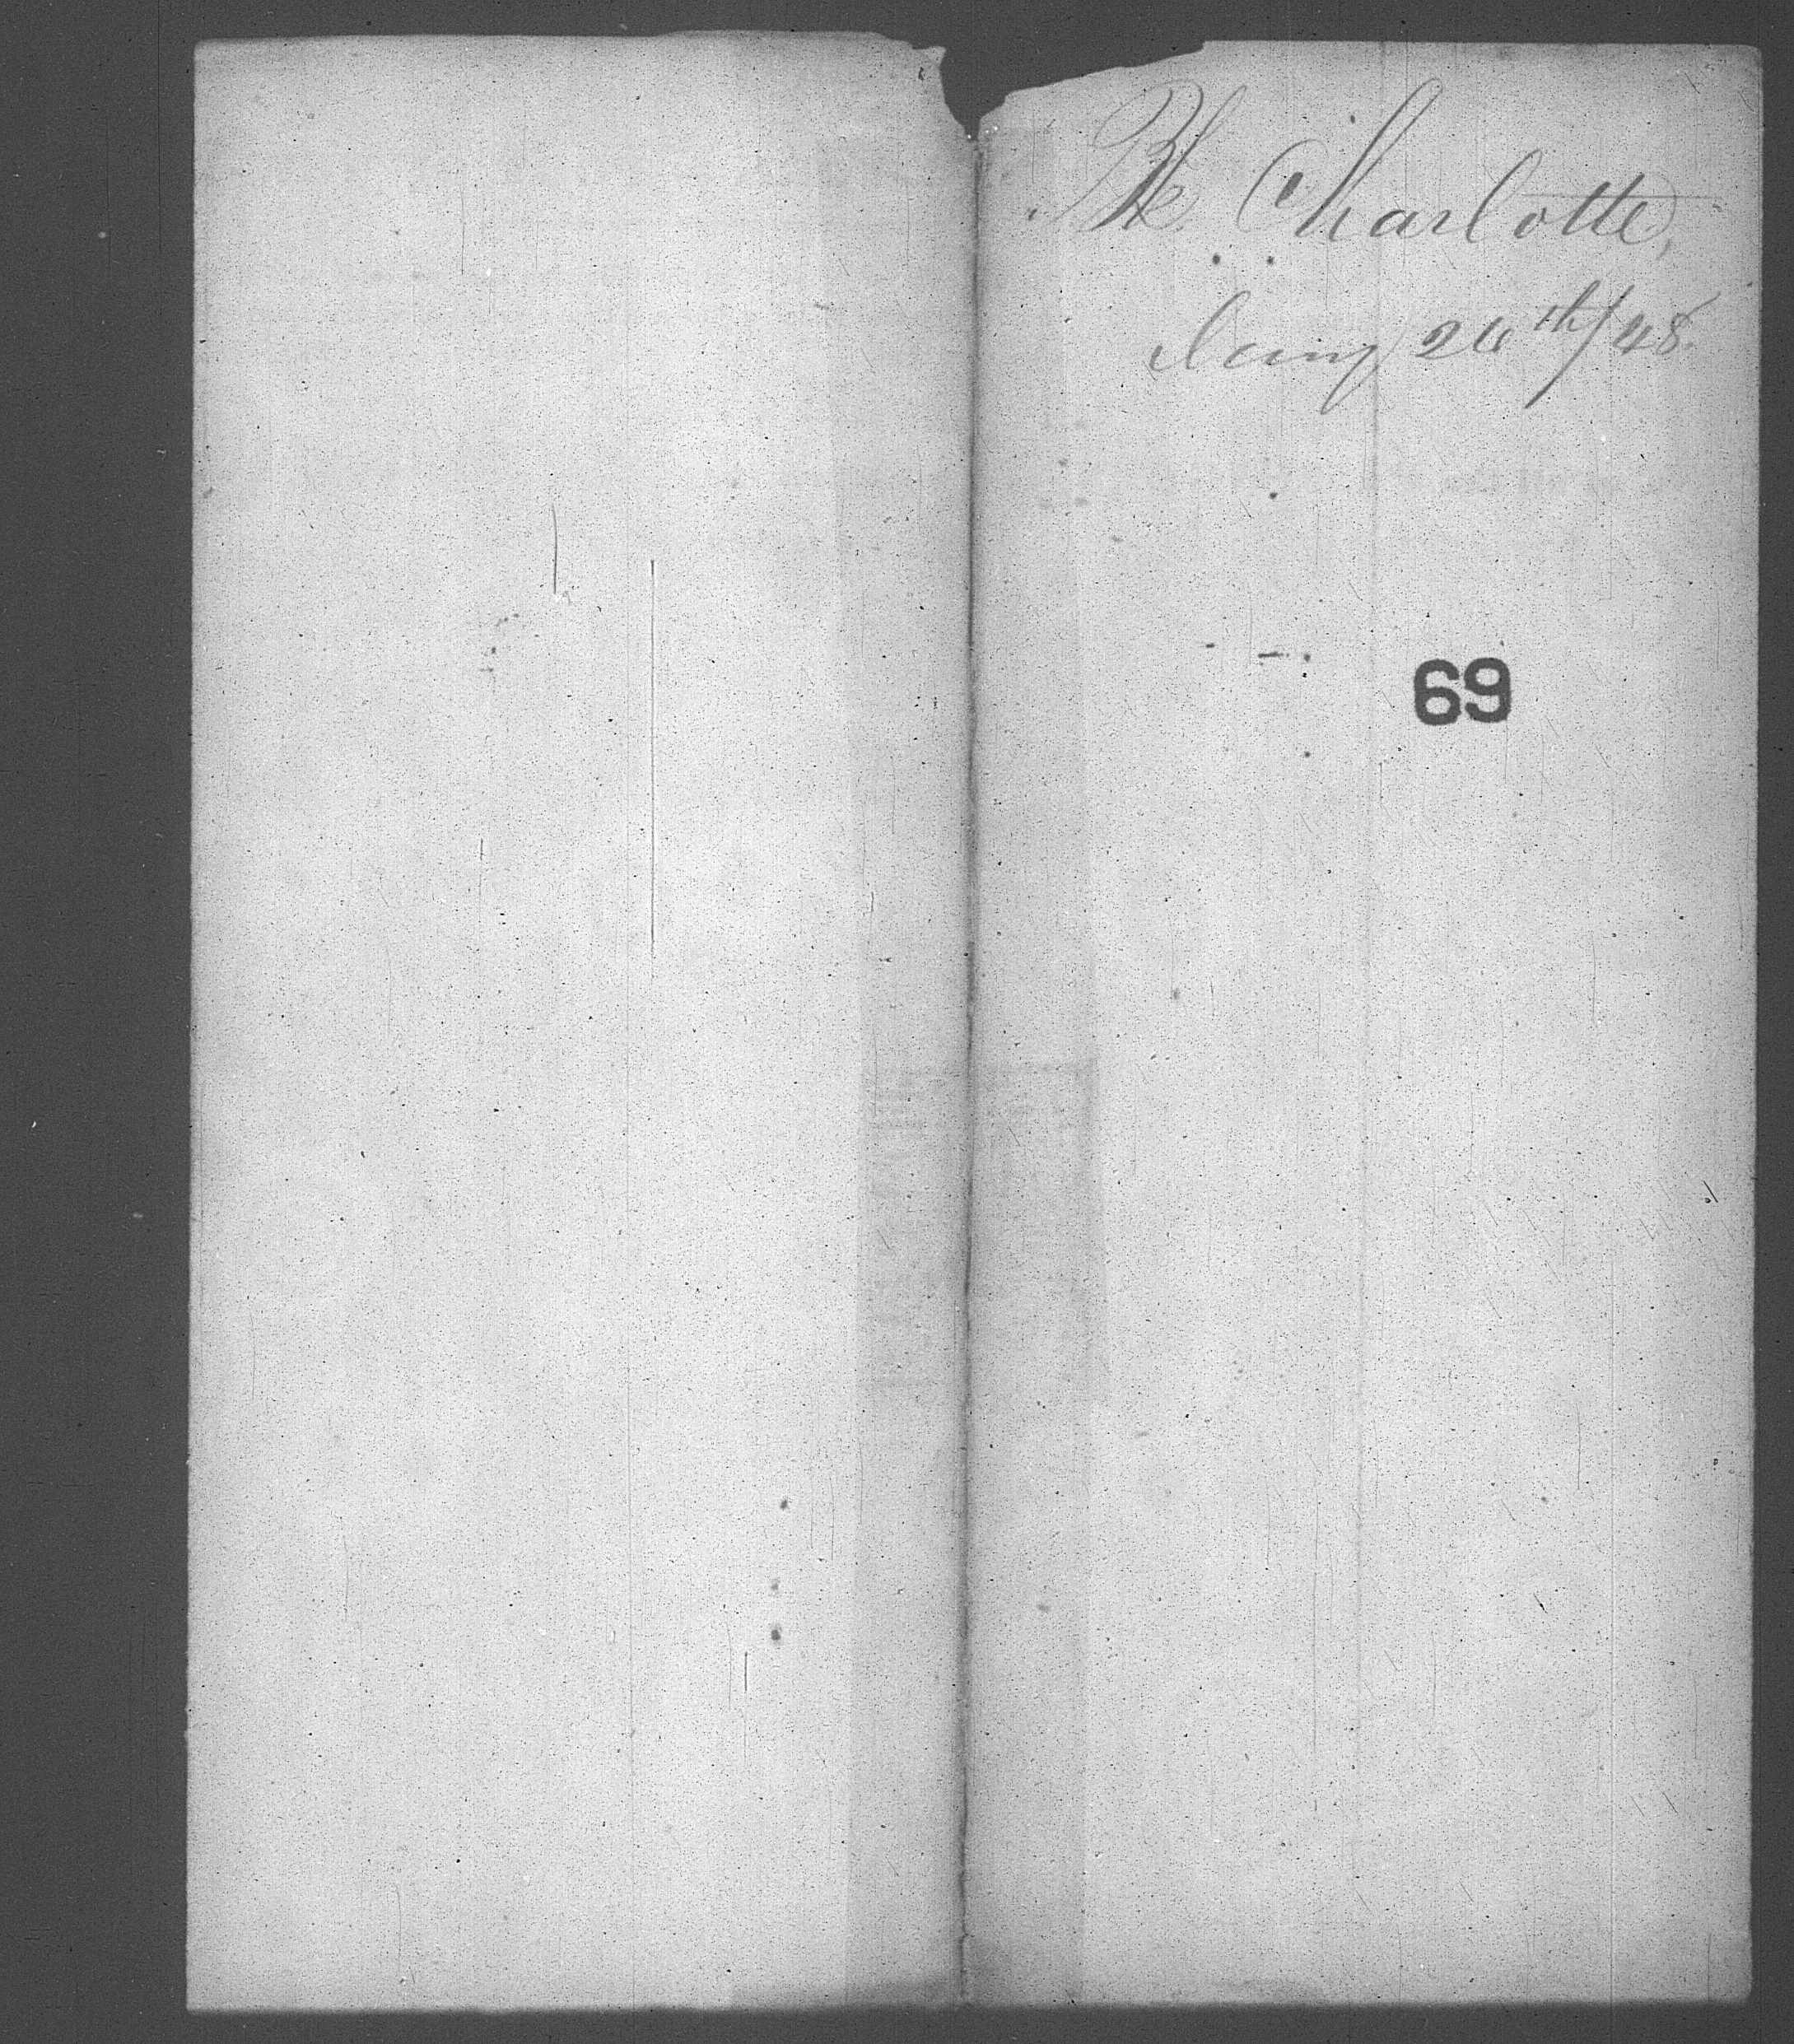 Bk. Charlotte,
Jany 26th/48.
69